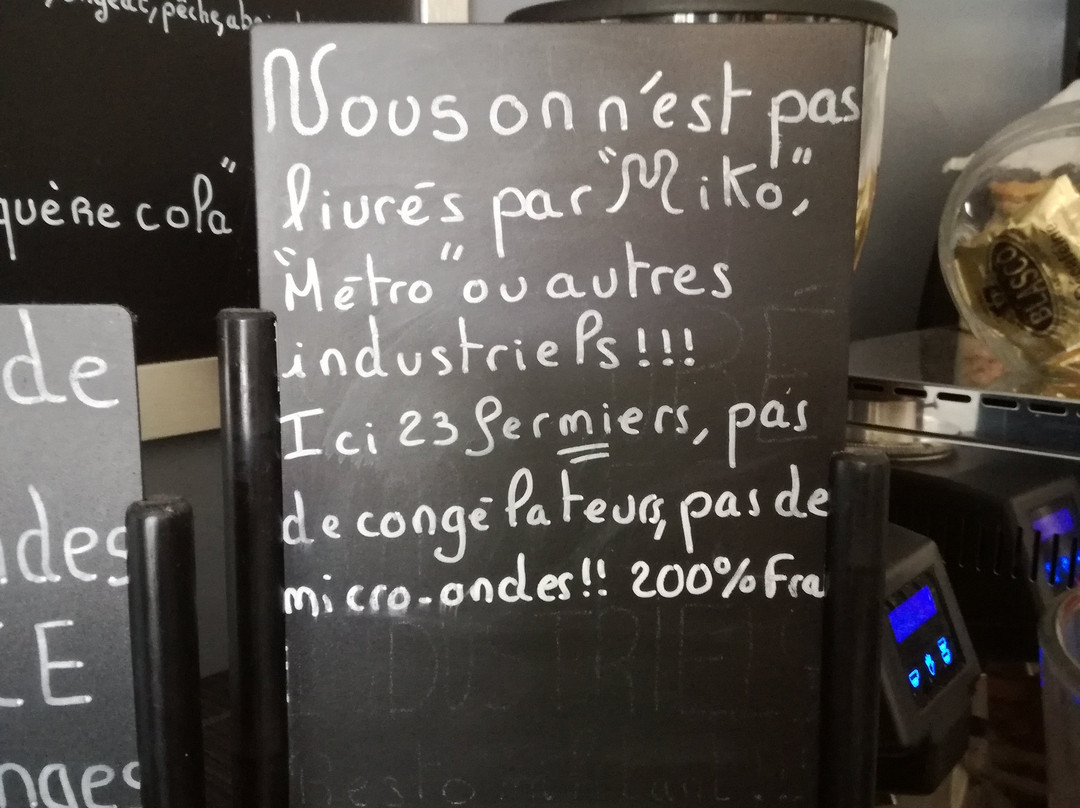 Nous on n'est pas
livrés par "Miko",
"Métro" ou autres
industriels !!!
Ici 23 fermiers, pas
de congélateurs, pas de
micro-ondes!! 200% Fra
pêche,
quère cola"
de
des
CE
nges
BLASCO